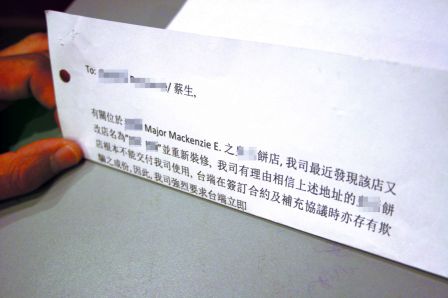 To: / 蔡生,
有關位於 Major Mackenzie E. 之 餅店, 我司最近發現該店又
改店名為" "並重新裝修, 我司有理由相信上述地址的 餅
店根本不能交付我司使用, 台端在簽訂合約及補充協議時亦存有欺
騙之成份, 因此, 我司強烈要求台端立即